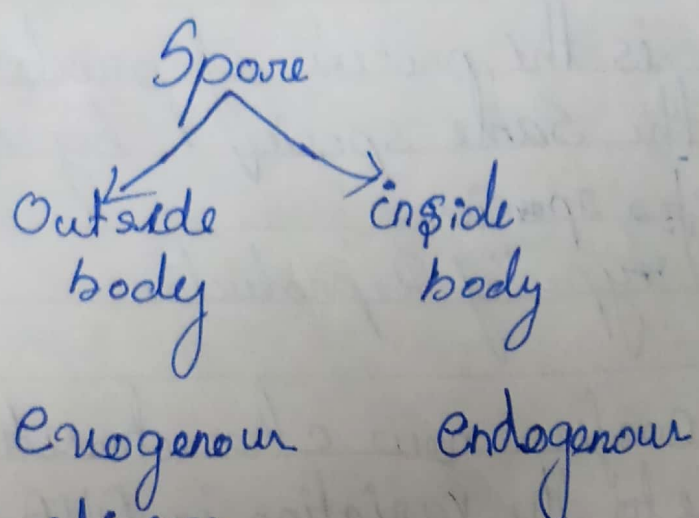 Spore
Outside inside
body body
Exogenous endogenous